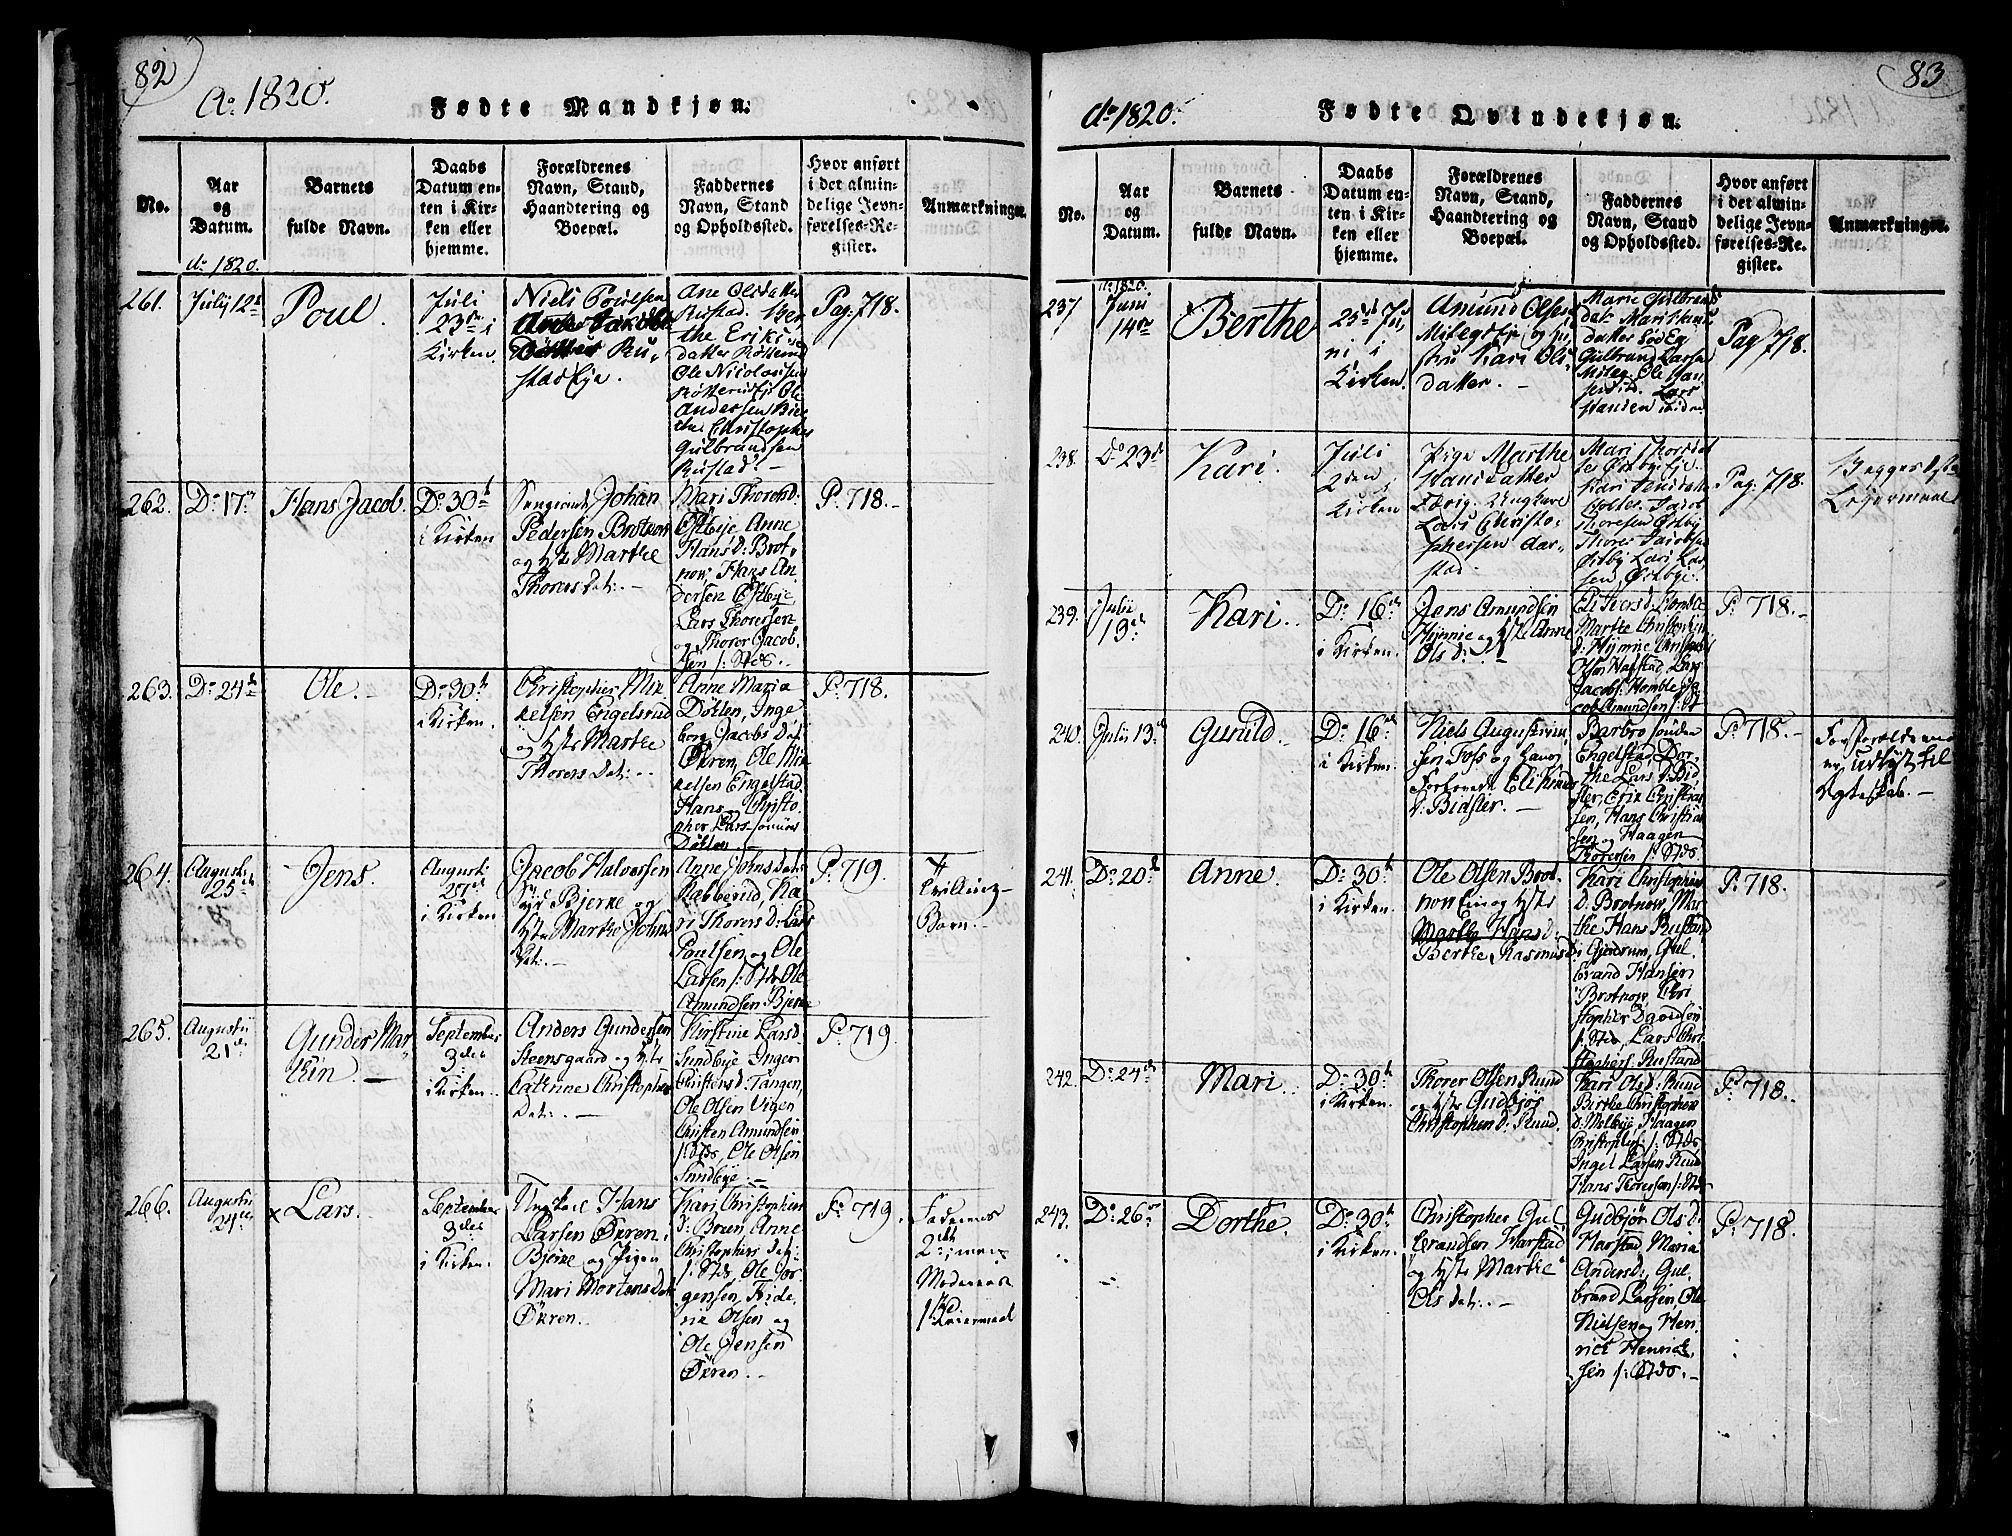 82
Ao 1820.
Fødte Mandkjøn.
No.
Aar
og
Datum.
Barnets
fulde Navn.
Daabs
Datum en-
ten i Kir-
ken eller
hjemme.
Forældrenes
Navn, Stand,
Haandtering og
Boepæl.
Faddernes
Navn, Stand
og Opholdssted.
Hvor anført
i det almin-
delige Jevn-
førelses-Re-
gister.
Anmærkninger.
Ao 1820.
261.
July 12te
Poul.
Juli
23de i
Kirken
Niels Poulsen
Rustad Eje.
Ane Olsdatter
Rustad. Ber
the Eriks
datter
Ole Nicolaisen
Ole
Andersen
Christopher
Gulbrandsen
Rustad. –
Pag. 718.
262.
Do 17de
Hans Jacob.
Do 30te
i Kirken
Johan
Pedersen Brotnow
og Hustr Marthe
Thorers Dat: –
Mari Thorersd:
Estbye, Anne
Hansd: Brot
now, Hans An
dersen Estbye
Lars Thorersen
og Thorer Jacob
sen /: Stds. –
P. 718. –
263.
Do 24de
Ole. –
Do 30te
i Kirken.
Christopher Mik
kelsen Engelsrud
og Hstr Marthe
Thorers Dat: –
Anne Maria
Døhlen, Inge
borg Jacobs Dat
Økren, Ole Mik
kelsen Engelstad
Hans Christo
pher Lars
Døhlen. –
P. 718.
264.
Augusti
25de
Jens.
Augusti
27de
i Kirken.
Jacob Halvorsen
Bjerke og
Hstr Marthe Johns
Dat: –
Anne Johns Dat:
Rabberud, Ka
ri Thorers D: Lars
Poulsen og Ole
Larsen /: Stds Ole
Amundsen Bjerke
P. 719.
Tvilling-
Barn.
265.
Augusti
21de
Gunder Mar
thin. –
September
3die
i Kirken.
Anders Gundersen
Steensgaard og Hstr
Catrine Christophers
Dat: –
Kirstine Larsd.
Sundbye Inger
Christensd: Tangen,
Ole Olsen Vigen
Christen Amundsen
/: Stds, Ole Olsen
Sundbye –
P. 719.
266.
Augusti
24de
x Lars.
September
3die
i Kirken.
Ungkarl Hans
Larsen Økren,
Bjerke og Pigen
Mari Mortens Dat
Økren.
Kari Christophers
d: Bruen Anne
Christophers Dat:
/: Stds, Ole Jør
gensen, Fride
rik Olsen og
Ole Jensen
Økren. –
P. 719.
Faderens
2det, men
Moderens
1ste
Leiermaal
83
Ao 1820.
Fødte Qvindekjøn.
No.
Aar
og
Datum.
Barnets
fulde Navn.
Daabs
Datum en-
ten i Kir-
ken eller
hjemme.
Forældrenes
Navn, Stand,
Haandtering og
Boepæl.
Faddernes
Navn, Stand
og Opholdssted.
Hvor anført
i det almin-
delige Jevn-
førelses-Re-
gister.
Anmærkninger.
Ao 1820.
237
Juni
14de
Berthe
25de Ju
ni i
Kirken.
Amund Olsen
og Hu
stru Kari Ols
datter. –
Marie Gulbrands
dat. Mari Hans
datter
Gulbran Larsen
Ole Han
sen Lars
Hansen ibidem
Pag 718.
238.
Do 23de
Kari.
Juli
2den i
Kirken
Pige Marthe
Hansdatter
Ungkarl
Lars Christo
phersen Aar
stad.
Mari Thorsdat
ter Østbyeje.
Kari
Jacob
Thoresen Østby
Thorer Jacobsen
Østby Lars Lar
sen, Østbye.
Pag. 718.
Begges 1ste
Leiermaal
239.
Julii
13de
Kari.
Do 16de
i Kirken.
Hans Amundsen
Hymrie og Hstr Anne
Ols D:
Homble
Marthe
d: Hymrie
Olsen Harstad, Lars
Jacobs: Homble Ja
cob Amundsen /: St
P. 718. –
240.
Julii 13de
Gunild.
Do 16de
i Kirken.
Niels Augustinu
sen Foss og hans
Forlovede Eli Knuds
d: Bidsler. –
Barbro
Engelstad, Dor
the Lars d: Bid
sler, Erik Christian
sen, Hans Christian
sen og Haagen
Thoresen /: Stds
P. 718. –
Forældrene
er udlyst til
Ægteskab. –
241.
Do 20de
Anne.
Do 30te
i Kirken.
Ole Olsen Brot
now Eie og Hstr
Marthe Hansd:
Berthe Rasmusd:
Kari Christophers
d: Brotnow, Mar
the Hans Rustad
i Gjerdrum, Gul
brand Hansen
Brotnow, Chri
stopher Davidsen
/: Stds, Lars Chri
stophers: Rustand
P. 718.
242.
Do 24de
Mari.
Do 30te
i Kirken.
Thorer Olsen Rund
og Hstr Gudbjør
Christophers d: Rund.
Kari Olsd: Rund
Berthe Christophers
d: Melbye, Haagen
Christophers: /: Stds
Ingel Larsen Rund
Hans Thoresen /: Stds
P. 718. –
243.
Do 26de
Dorthe.
Do 30te
i Kirken.
Christopher Gul
brandsen Harstad
og Hstr Marthe
Ols Dat: –
Gudbjør Ols d:
Harstad Maria
Andersd: Gul
brand Larsen, Ole
Nielsen og Hen
rick Henrick
sen /: Stds. –
P. 718.